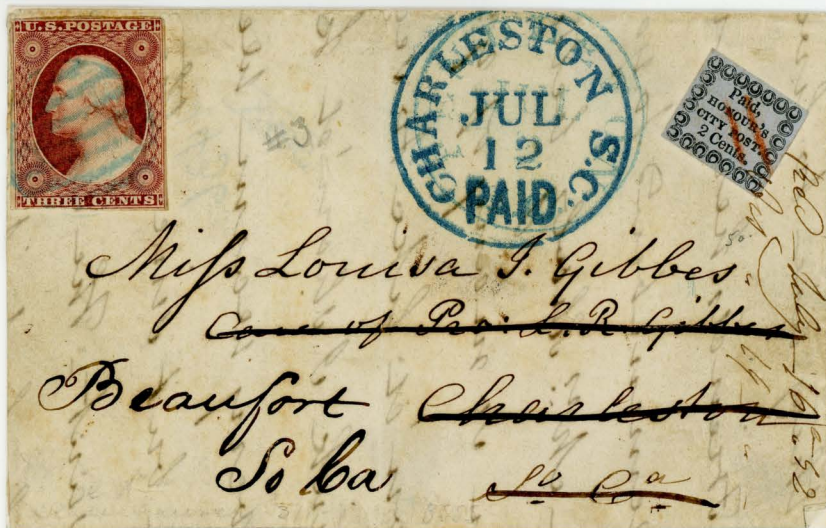 U.S. POSTAGE
THREE CENTS
#3
CHARLESTON S.C.
JUL
12
PAID
Paid,
HONOUR'S
CITY POST.
2 Cents.
50
Miss Louisa I. Gibbes
Care of Pro: L. R. Gibbes
Beaufort Charleston
So Ca So Ca
rec July 16 - 52